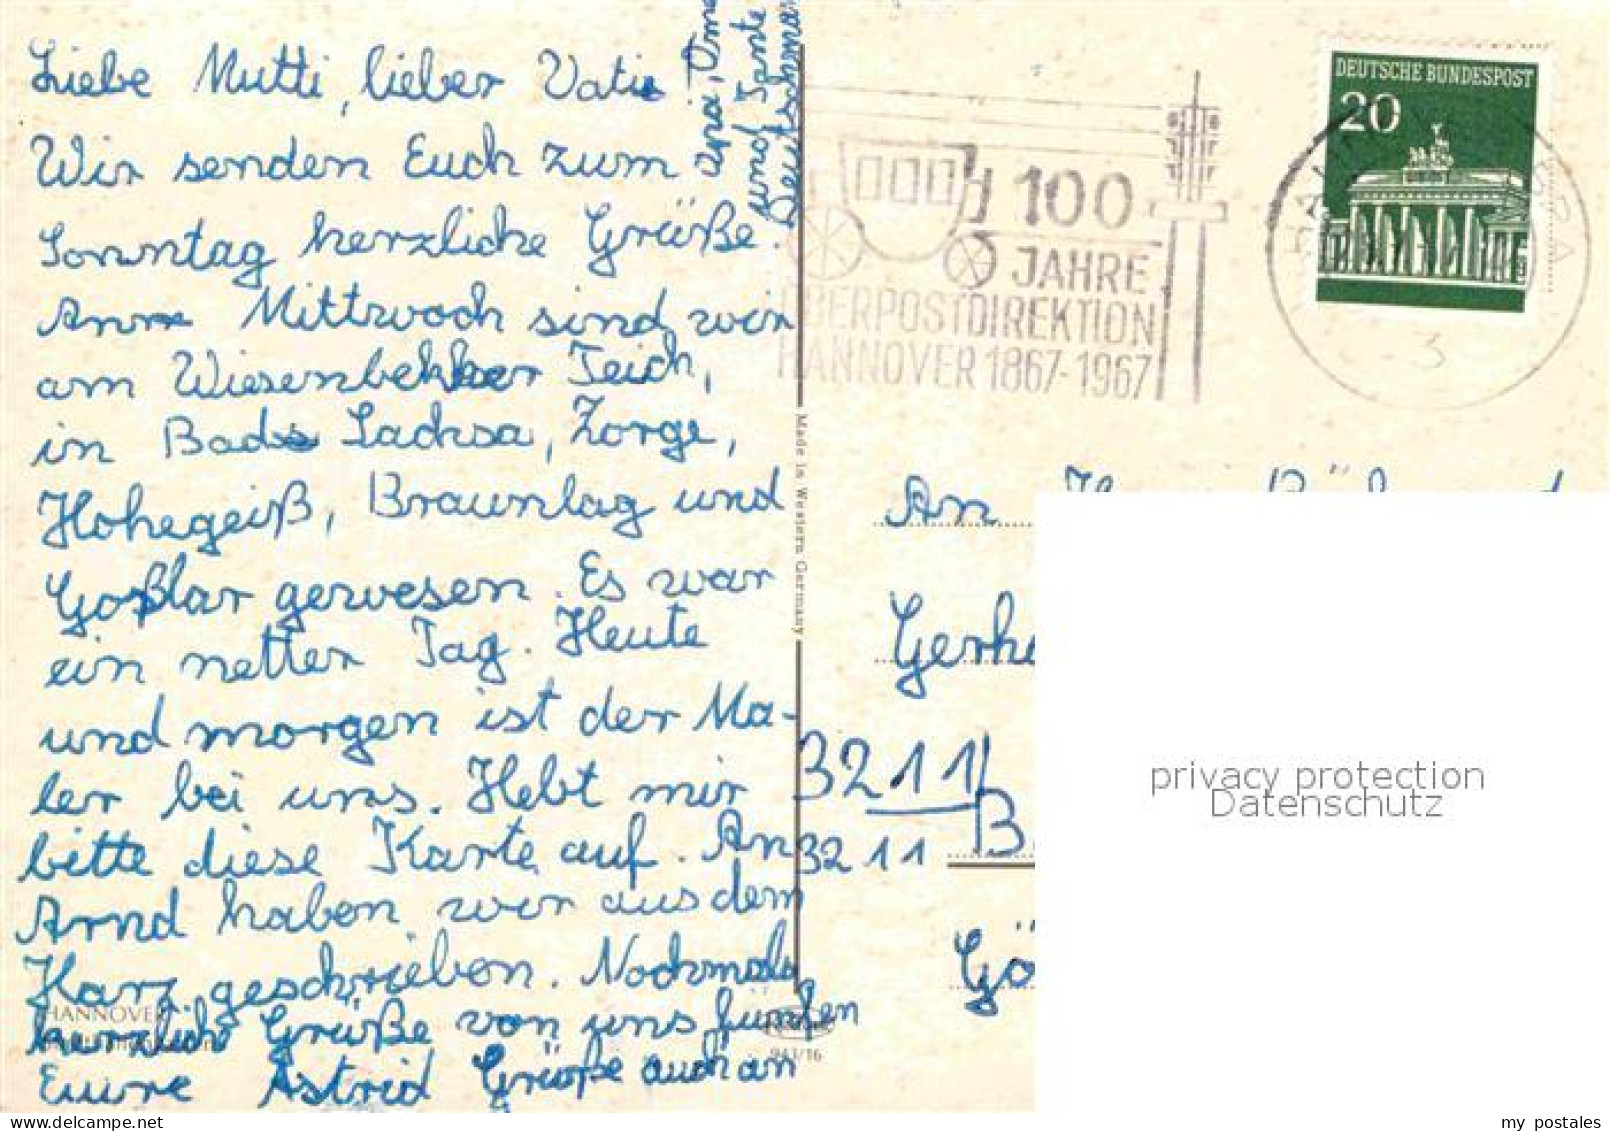 Liebe Mutti, lieber Vati
Wir senden Euch zum
Sonntag herzliche Grüße.
Am Mittwoch sind wir
am Wiesenbekker Teich,
in Bad Sachsa, Zorge,
Hohegeiß, Braunlag und
Goßlar gewesen. Es war
ein netter Tag. Heute
und morgen ist der Ma-
ler bei uns. Hebt mir
bitte diese Karte auf. An
Arnd haben wir aus dem
Harz geschrieben. Nochmals
herzliche Grüße von uns fünfen
Eure Astrid Grüße auch an
Opa, Oma
und Tante
HANNOVER
943/16
Made in Western Germany
100
JAHRE
OBERPOSTDIREKTION
HANNOVER 1867-1967
DEUTSCHE BUNDESPOST
20
3
An
Gerh
3211
B
3211
Gö
privacy protection
Datenschutz
my postales